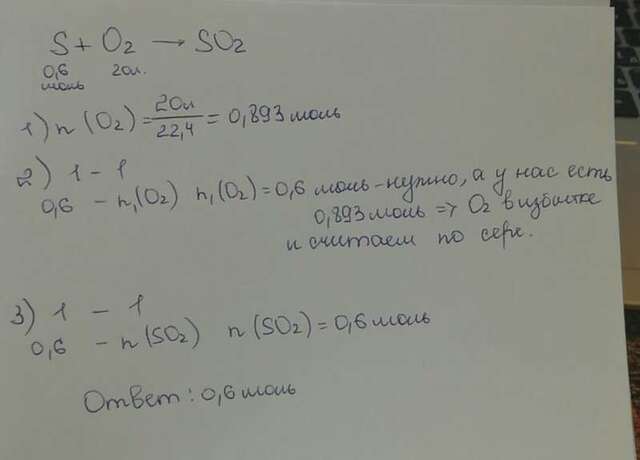 S + O2 → SO2
0,6 20л.
моль
1) n (O2) = 20л/22,4 = 0,893 моль
2) 1 - 1
0,6 - n1(O2) n1(O2) = 0,6 моль - нужно, а у нас есть
0,893 моль => O2 в избытке
и считаем по сере.
3) 1 - 1
0,6 - n(SO2) n(SO2) = 0,6 моль
Ответ: 0,6 моль